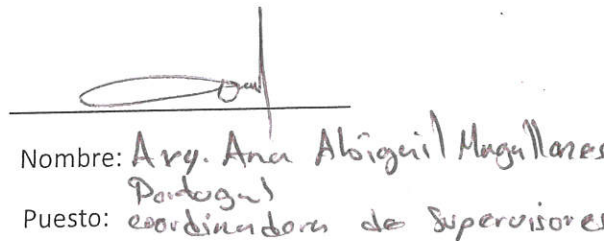 Nombre: Arq. Ana Abigail Magallanes
Portugal
Puesto: coordinadora de Supervisores